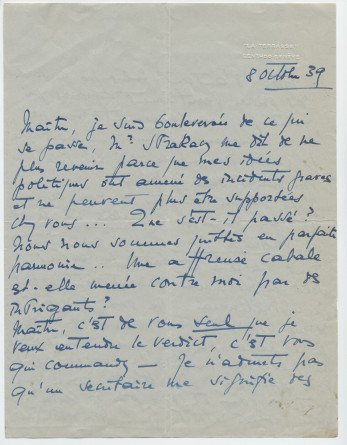 8 Octobre 39
Maître, je suis bouleversée de ce qui
se passe, Mr Strakacz me dit de ne
plus revenir parce que mes idées
politiques ont amené des incidents graves
et ne peuvent plus être supportées
chez vous ... Que s'est-il passé?
Nous nous sommes quittés en parfaite
harmonie .. Une affreuse cabale
est-elle menée contre moi par des
intrigants?
Maître, c'est de vous seul que je
veux entendre le verdict, c'est vous
qui commandez — Je n'admets pas
qu'un secrétaire me signifie des